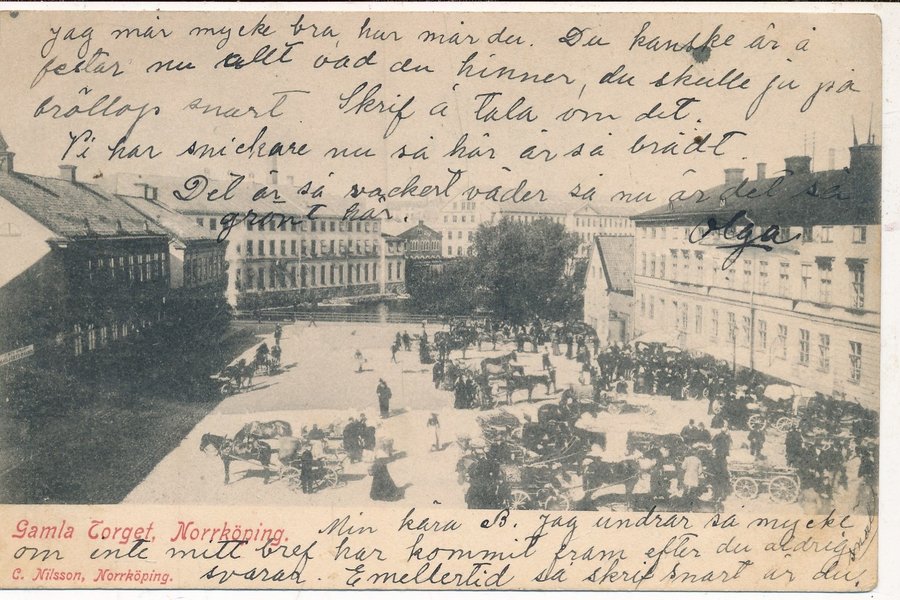 jag mår mycke bra, hur mår du. Du kanske är å
festar nu allt vad du hinner, du skulle ju på
bröllop snart. Skrif å tala om det.
Vi har snickare nu så här är så brådt.
Det är så vackert väder så nu är det så
grånt här.
Olga
Gamla Torget, Norrköping.
Min kära B. Jag undrar så mycke
om inte mitt bref har kommit fram efter du aldrig
svarar. Emellertid så skrif snart är du
C. Nilsson, Norrköping.